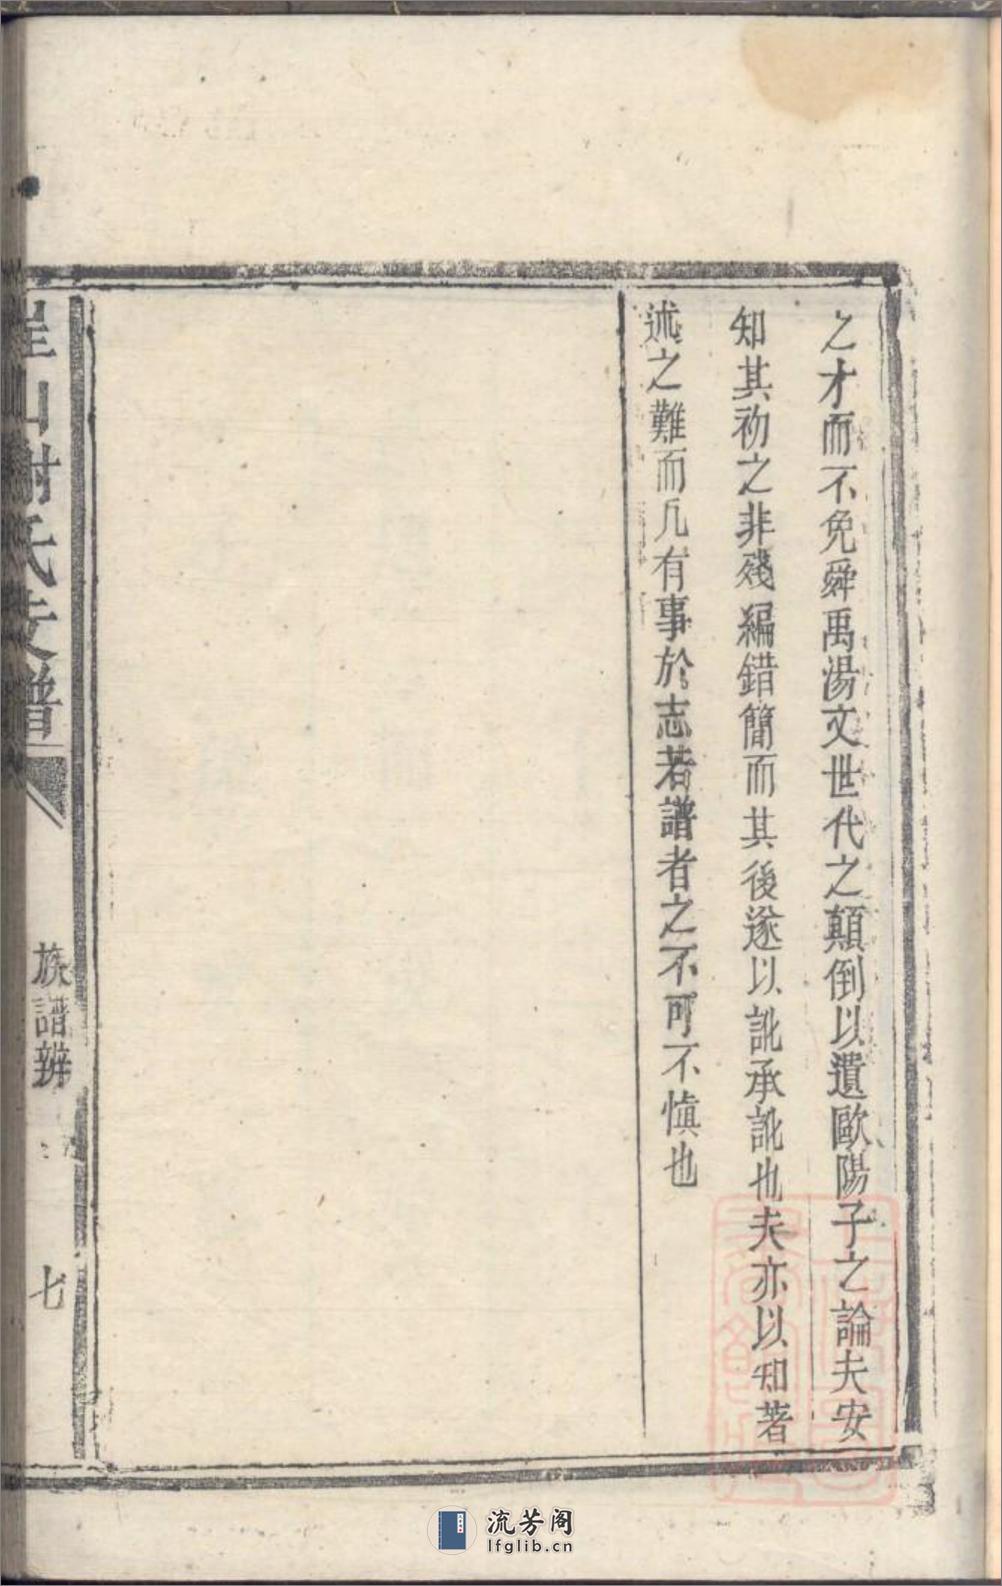 之才而不免舜禹湯文世代之顛倒以遺歐陽子之論夫安
知其初之非殘編錯簡而其後遂以訛承訛也夫亦以知著
述之難而凡有事於志若譜者之不可不愼也
山謝氏支譜
族譜辨
七
流芳阁
lfglib.cn